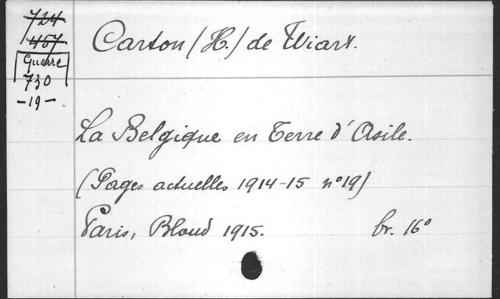 724
457
Guerre
730
-19-
Carton (H.) de Wiart.
La Belgique en Terre d'Asile.
(Pages actuelles 1914-15 n°19)
Paris, Bloud 1915. br. 16°